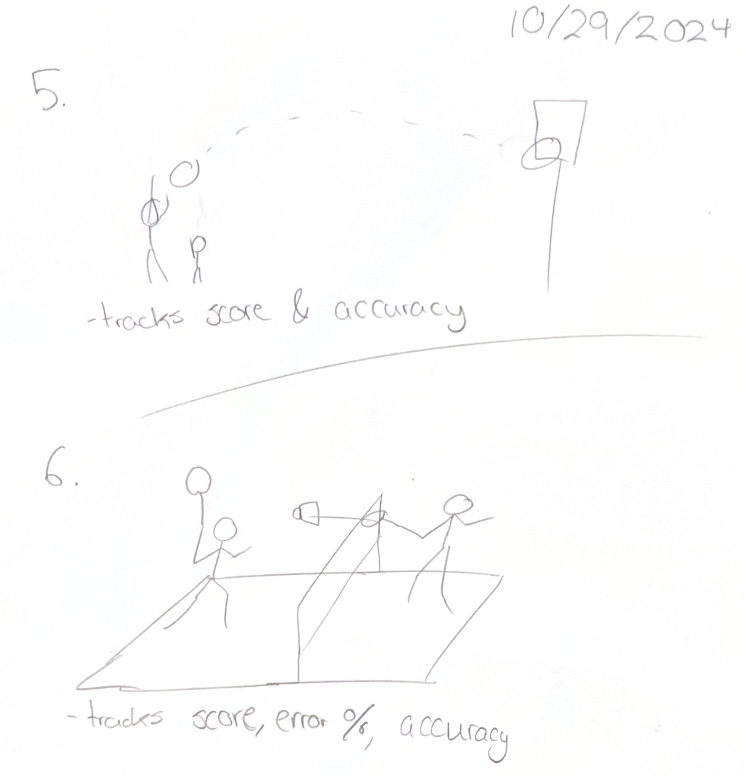 10/29/2024
5.
-tracks score & accuracy
6.
-tracks score, error %, accuracy